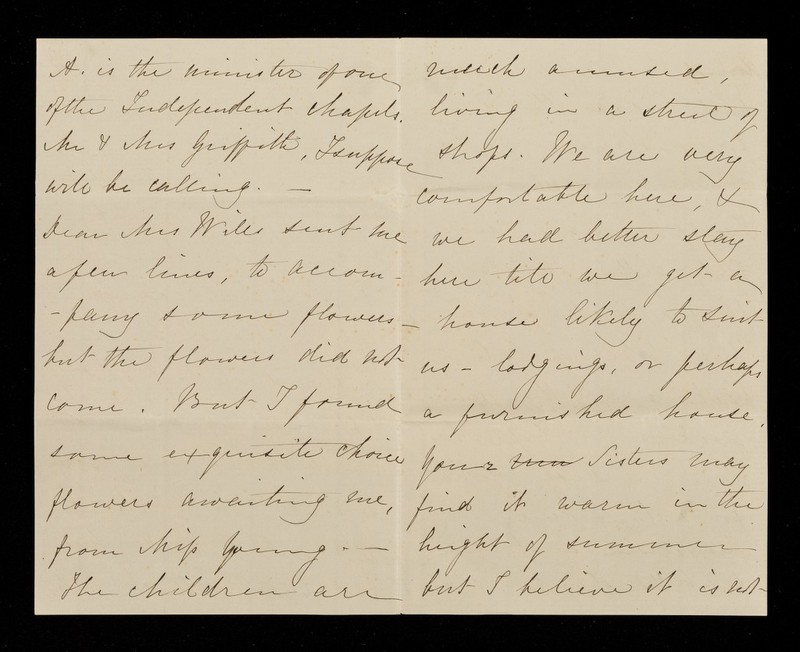 A. is the minister of one
of the Independent Chapels.
Mr & Mrs Griffith, I suppose
will be calling. —
Dear Mrs Wills sent me
a few lines, to accom-
-pany some flowers —
but the flowers did not
come. But I found
some exquisite choice
flowers awaiting me,
from Miss Young. —
The children are
much amused,
living in a street of
shops. We are very
comfortable here, &
we had better stay
here till we get a
house likely to suit
us - lodgings, or perhaps
a furnished house.
Your Sisters may
find it warm in the
height of summer
but I believe it is not